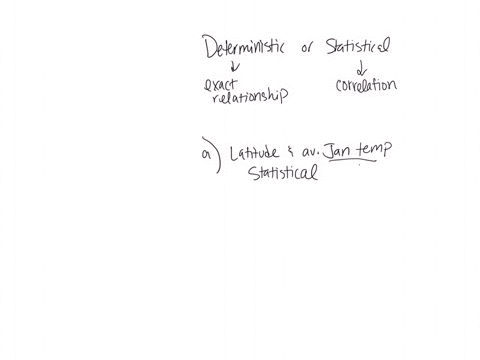 Deterministic or Statistical
↓ ↓
exact correlation
relationship
a) Latitude & av. Jan temp
Statistical